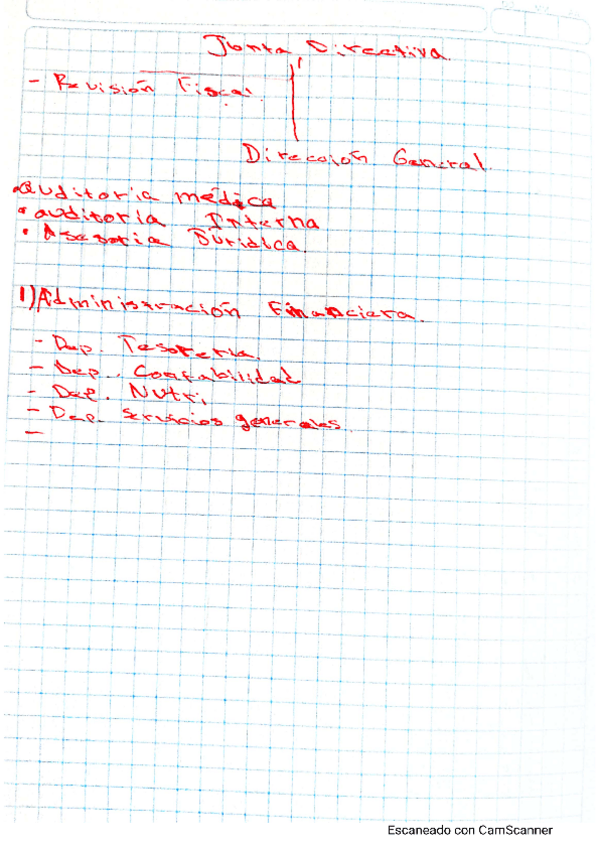 Junta Directiva.
- Revisión Fiscal.
Dirección General.
• auditoria médica
• auditoria Interna
• Asesoria Juridica.
1) Administración Financiera.
- Dep. Tesoreria.
- Dep. Contabilidad
- Dep. Nutri,
- Dep. Servicios generales.
-
Escaneado con CamScanner